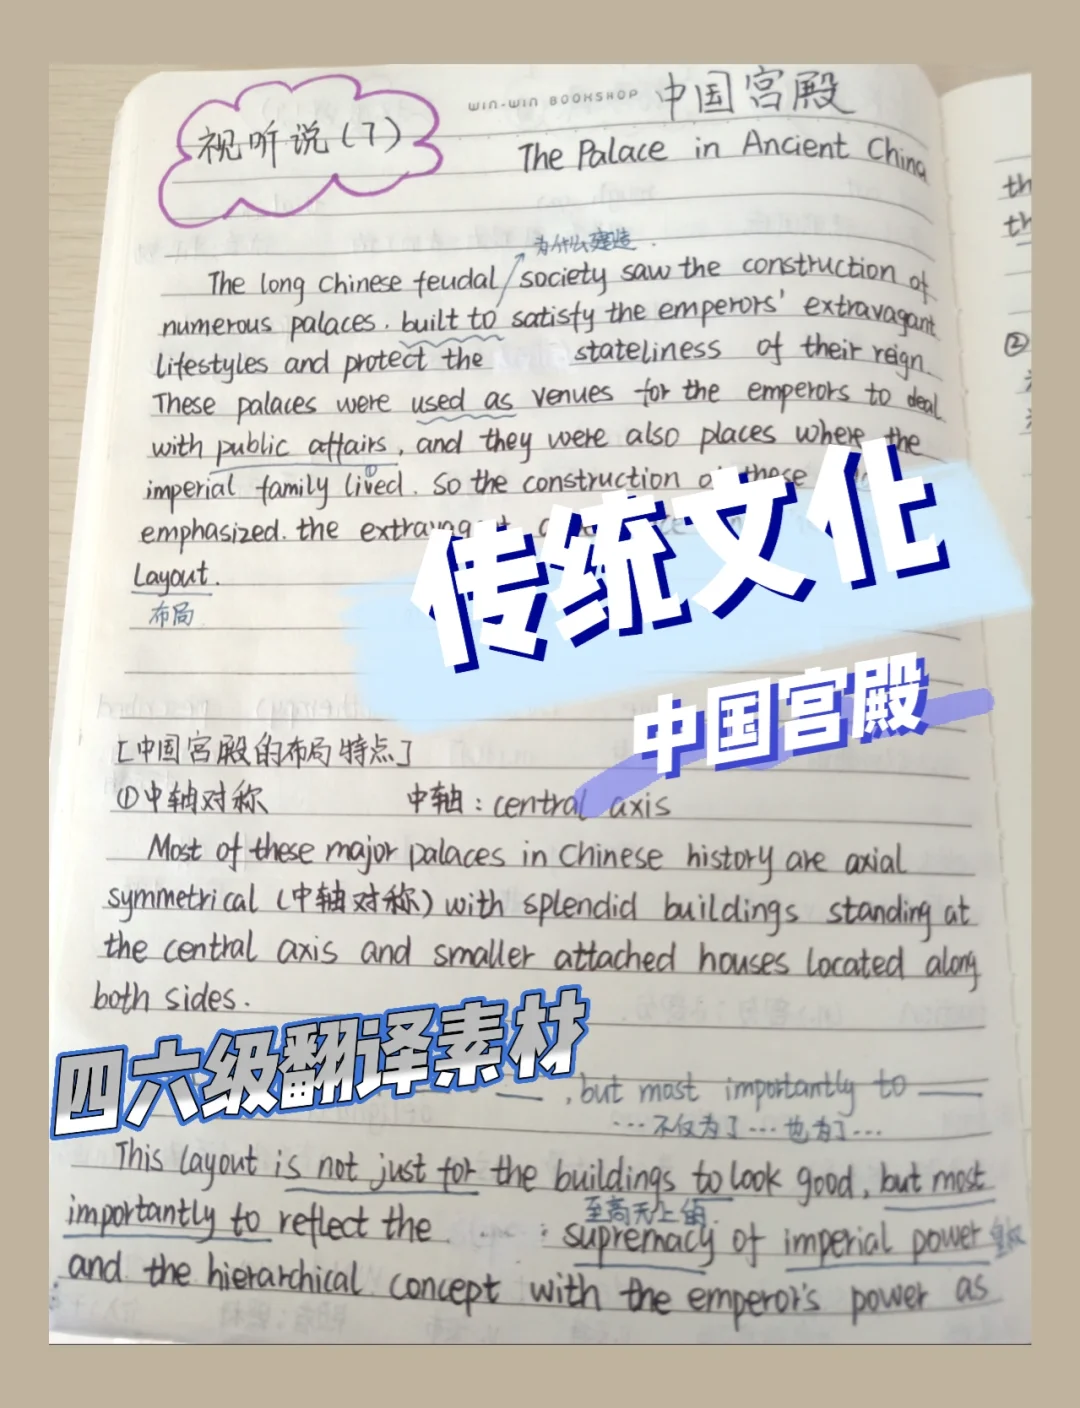 视听说(7)
WIN-WIN BOOKSHOP 中国宫殿
The Palace in Ancient China
为什么建造.
The long Chinese feudal society saw the construction of
numerous palaces. built to satisfy the emperors' extravagant
lifestyles and protect the stateliness of their reign.
These palaces were used as venues for the emperors to deal
with public affairs, and they were also places where the
imperial family lived. So the construction of these
emphasized. the
传统文化
Layout.
布局
中国宫殿
[中国宫殿的布局特点]
①中轴对称 中轴:central axis
Most of these major palaces in Chinese history are axial
symmetrical (中轴对称) with splendid buildings standing at
the central axis and smaller attached houses located along
both sides.
四六级翻译素材
, but most importantly to
...不仅为了...也为了...
This layout is not just for the buildings to look good, but most
至高无上的
importantly to reflect the supremacy of imperial power
and the hierarchical concept with the emperor's power as
th
th
②